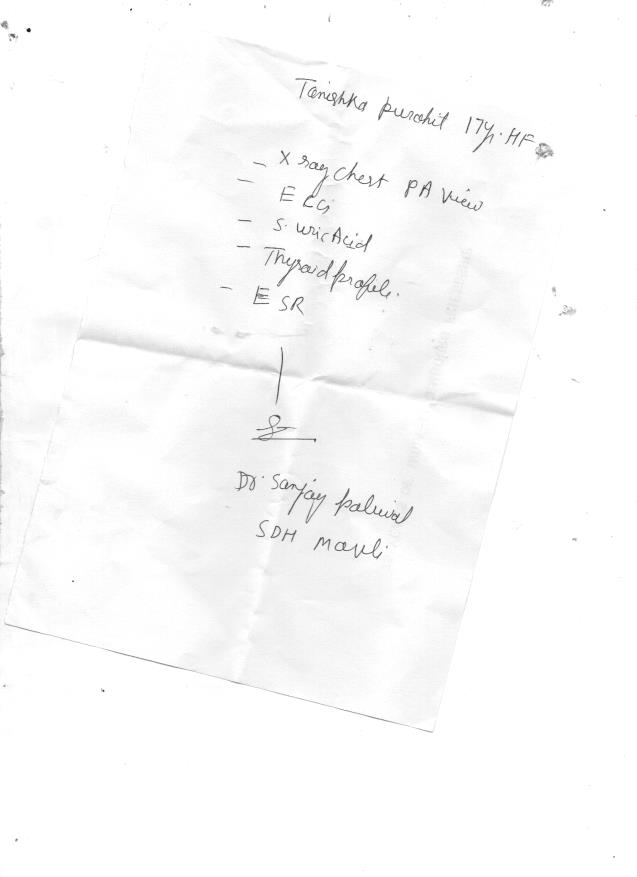 Tanishka Purohit 17y. HF
- X ray chest PA view
- ECG
- S. uric Acid
- Thyroid profile.
- ESR
Dr. Sanjay Paliwal
SDH Mavli